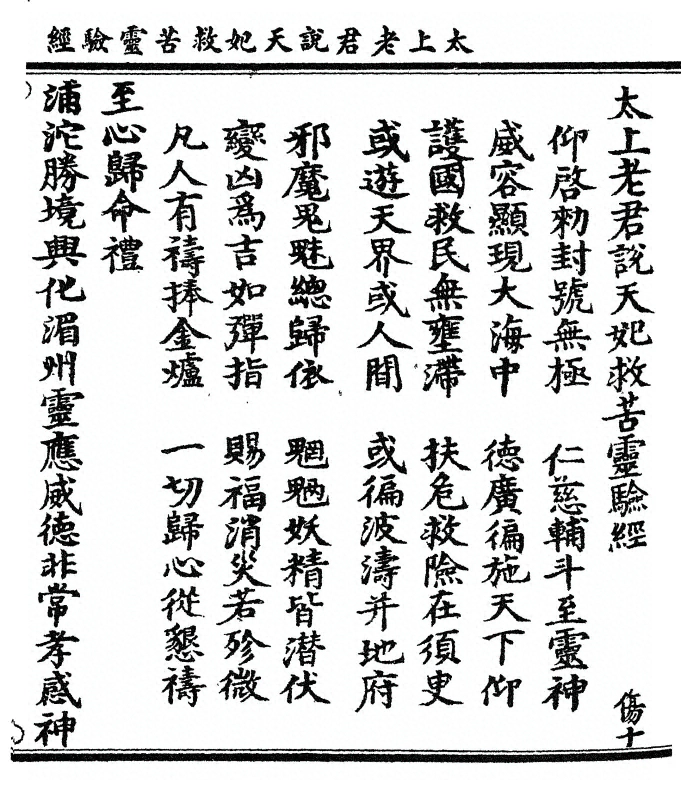 太上老君說天妃救苦靈驗經
太上老君說天妃救苦靈驗經 傷十
仰啓勑封號無極 仁慈輔斗至靈神
威容顯現大海中 德廣徧施天下仰
護國救民無壅滯 扶危救險在須臾
或遊天界或人間 或徧波濤并地府
邪魔鬼魅總歸依 魍魎妖精皆潛伏
變凶爲吉如彈指 賜福消災若殄微
凡人有禱捧金爐 一切歸心從懇禱
至心歸命禮
浦沱勝境興化湄州靈應威德非常孝感神